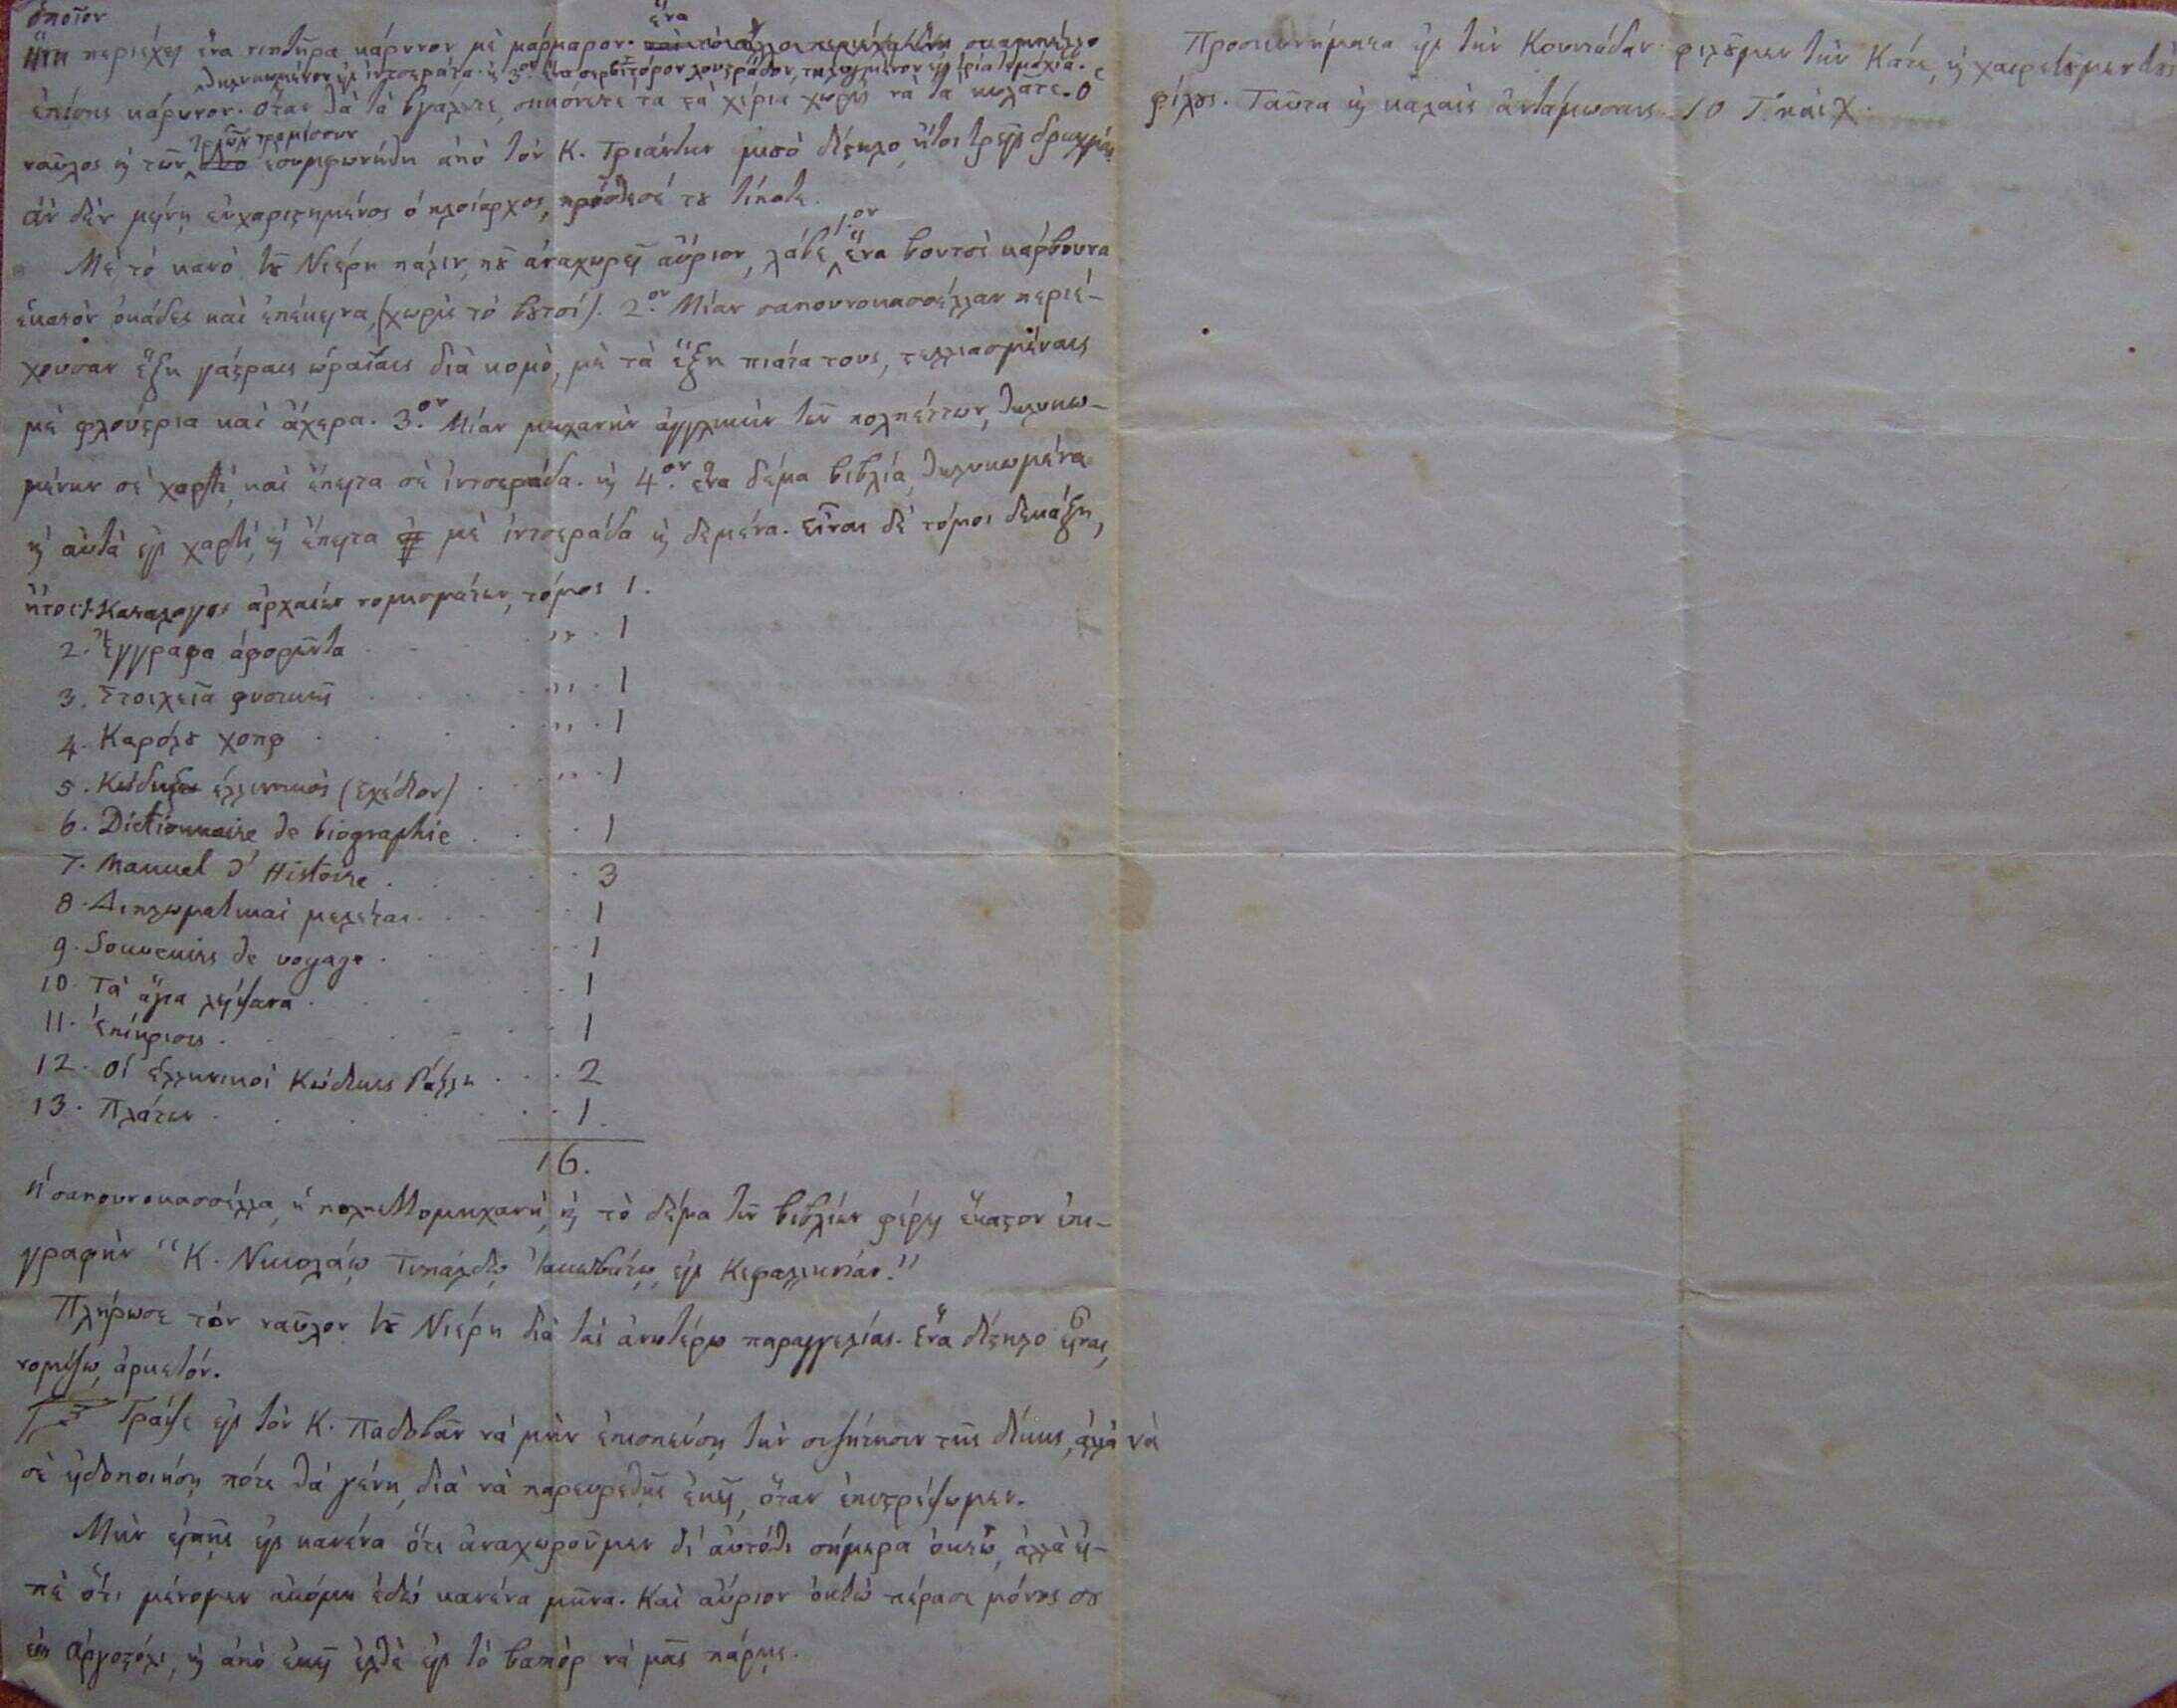 ὁποῖον
περιέχει ἕνα νιπτῆρα κάρυνον μὲ μάρμαρον. ἕνα σκαμπέλλο
ἐπίσης κάρυνον. ὅταν θὰ τὰ βγάλετε, σηκόνετέ τα στὰ χέρια χωρὶς νὰ τὰ κυλᾶτε. Ὁ
ναῦλος κ τῶν τριῶν ἐσυμφωνήθη ἀπὸ τὸν Κ. Τριάντην μισὸ δίστηλο, ἤτοι τρεῖς δραχμάς
ἂν δὲν μείνῃ εὐχαριστημένος ὁ πλοίαρχος, πρόσθεσέ τȣ τίποτε.
Μὲ τὸ καϊκὸ τȣ Νιέρη πάλιν, πȣ ἀναχωρεῖ αὔριον, λάβε 1.ον ἕνα βουτσὶ κάρβουνα
ἑκατὸν ὀκάδες καὶ ἐπέκεινα, (χωρὶς τὸ βȣτσί). 2.ον Μίαν σαπουνοκασσέλλαν περιέ-
χουσαν ἕξη γάστραις ὡραίαις διὰ κομὸ, μὲ τὰ ἕξη πιάτα τους, στελλιασμέναις
μὲ φλούερια καὶ ἄχερα. 3.ον Μίαν μηχανὴν ἀγγλικὴν τῶν πολπέττων, θηλυκω-
μένην σὲ χαρτὶ, καὶ ἔπειτα σὲ ἰντσεράδα. κ 4.ον ἕνα δέμα βιβλία, θηλυκωμένα
κ αὐτὰ εἰς χαρτὶ, κ ἔπειτα μὲ ἰντσεράδα κ δεμένα. Εἶναι δὲ τόμοι δεκάξη,
ἤτοι: 1. Κατάλογος ἀρχαίων νομισμάτων, τόμος 1.
2. Ἔγγραφα ἀφορῶντα . . . ,, . 1
3. Στοιχεῖα φυσικῆς . . . ,, . 1
4. Καρόλȣ Χοπφ . . . ,, . 1
5. Κώδηξ ἑλληνικὸς (σχέδιον) . . ,, . 1
6. Dictionnaire de biographie . . . 1
7. Manuel d' Histoire . . . 3
8. Διπλωματικαὶ μελέται . . . 1
9. Souvenirs de voyage . . . 1
10. Τὰ ἅγια λείψανα . . . 1
11. Ἐπίκρισις . . . 1
12. Οἱ ἑλληνικοὶ Κώδικες Ράλλη . . . 2
13. Πλάτων . . . 1.
16.
Ἡ σαπουνοκασσέλλα, ἡ πολπεττομηχανὴ, κ τὸ δέμα τῶν βιβλίων φέρει ἕκαστον ἐπι-
γραφὴν "Κ. Νικολάῳ Τυπάλδῳ Ἰακωβάτῳ, εἰς Κεφαλληνίαν."
Πλήρωσε τὸν ναῦλον τȣ Νιέρη διὰ τὰς ἀνωτέρω παραγγελίας. Ἕνα δίστηλο εἶναι,
νομίζω, ἀρκετόν.
Γράψε εἰς τὸν Κ. Παδοβᾶν νὰ μὴν ἐπισπεύσῃ τὴν συζήτησιν τῆς δίκης, ἀλλὰ νὰ
σὲ εἰδοποιήσῃ πότε θὰ γένῃ, διὰ νὰ παρευρεθῇς ἐκεῖ, ὅταν ἐπιστρέψωμεν.
Μὴν εἰπῇς εἰς κανένα ὅτι ἀναχωροῦμεν δι' αὐτόθι σήμερα ὀκτὼ, ἀλλὰ εἰ-
πὲ ὅτι μένομεν ἀκόμη ἐδῶ κανένα μῆνα. Καὶ αὔριον ὀκτὼ πέρασε μόνος σȣ
εἰς Ἀργοστόλι, κ ἀπὸ ἐκεῖ ἐλθὲ εἰς τὸ βαπὸρ νὰ μᾶς πάρῃς.
Προσκυνήματα εἰς τὴν Κουνιάδαν. φιλȣμεν τὴν Κάτε, κ χαιρετȣμεν τȣς
φίλȣς. Ταῦτα κ καλαὶς ἀνταμώσαις.